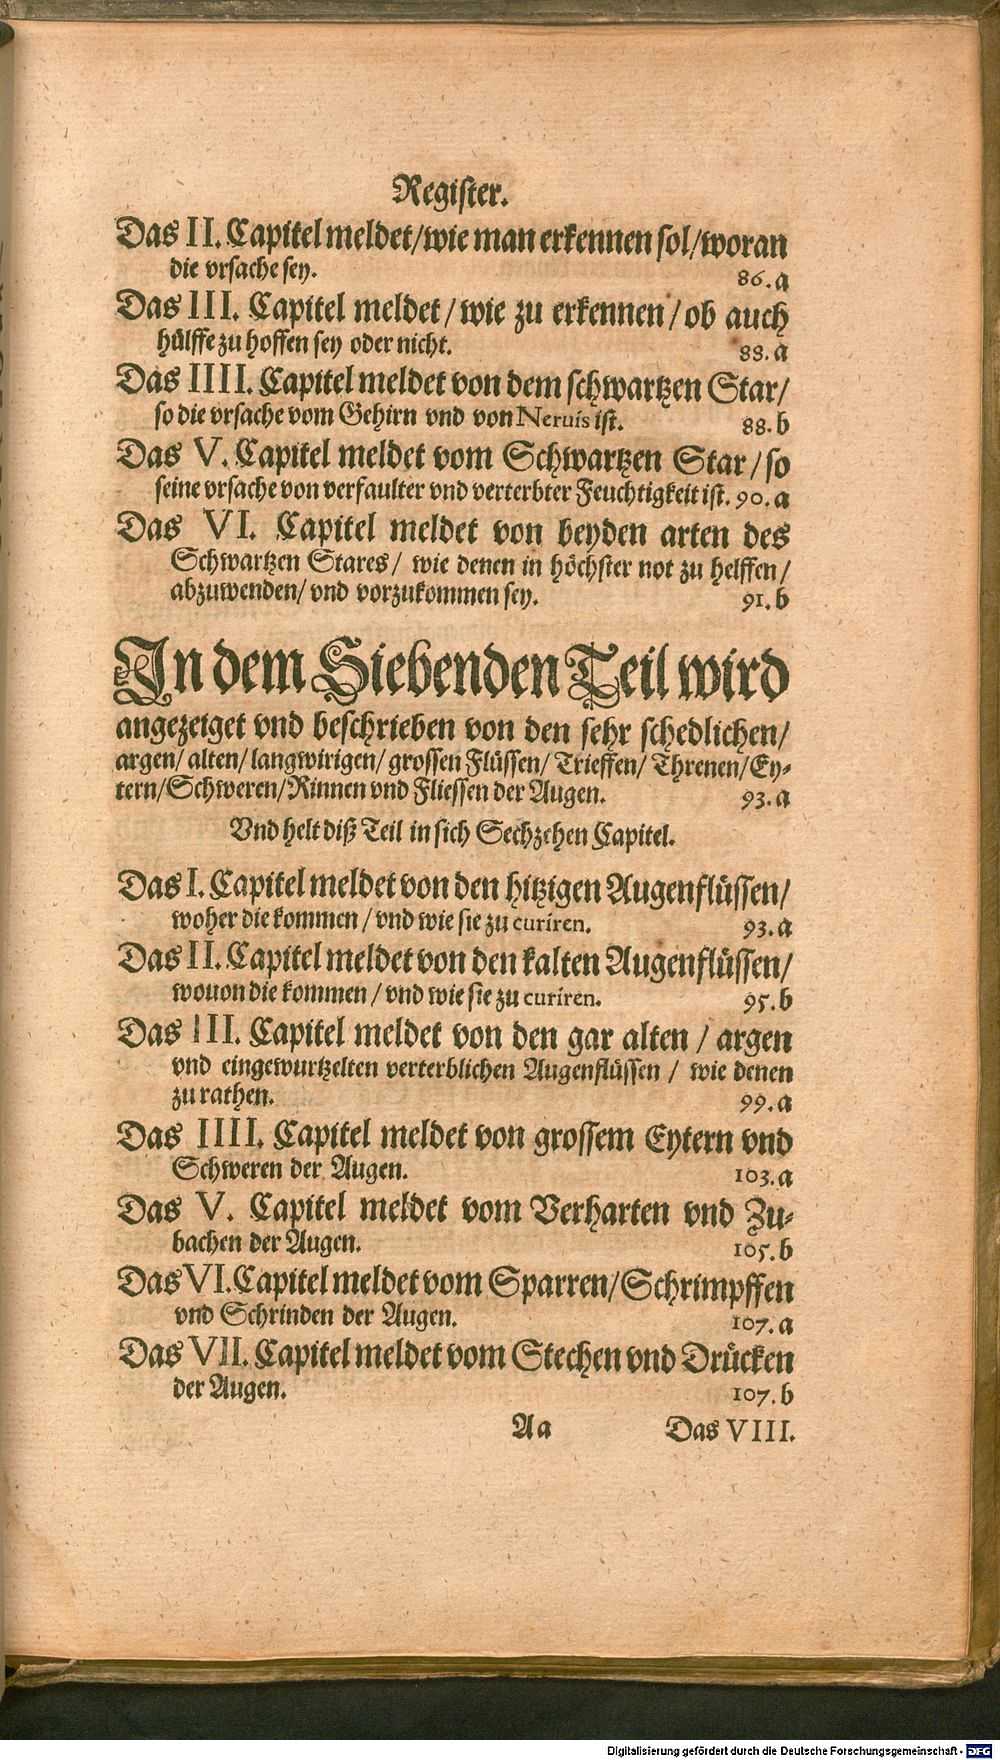 Register.
Das II. Capitel meldet/wie man erkennen sol/woran
die vrsache sey. 86.a
Das III. Capitel meldet/wie zu erkennen/ob auch
hülffe zu hoffen sey oder nicht. 88.a
Das IIII. Capitel meldet von dem schwartzen Star/
so die vrsache vom Gehirn vnd von Neruis ist. 88.b
Das V. Capitel meldet vom Schwartzen Star/so
seine vrsache von verfaulter vnd verterbter Feuchtigkeit ist. 90.a
Das VI. Capitel meldet von beyden arten des
Schwartzen Stares/ wie denen in höchster not zu helffen/
abzuwenden/ vnd vorzukommen sey. 91.b
In dem Siebenden Teil wird
angezeiget vnd beschrieben von den sehr schedlichen/
argen/ alten/ langwirigen/ grossen Flüssen/ Trieffen/ Threnen/Ey-
tern/Schweren/Rinnen vnd Fliessen der Augen. 93.a
Vnd helt diß Teil in sich Sechzehen Capitel.
Das I. Capitel meldet von den hitzigen Augenflüssen/
woher die kommen/vnd wie sie zu curiren. 93.a
Das II. Capitel meldet von den kalten Augenflüssen/
wouon die kommen/vnd wie sie zu curiren. 95.b
Das III. Capitel meldet von den gar alten/ argen
vnd eingewurtzelten verterblichen Augenflüssen/ wie denen
zu rathen. 99.a
Das IIII. Capitel meldet von grossem Eytern vnd
Schweren der Augen. 103.a
Das V. Capitel meldet vom Verharten vnd Zu-
bachen der Augen. 105.b
Das VI. Capitel meldet vom Sparren/Schrimpffen
vnd Schrinden der Augen. 107.a
Das VII. Capitel meldet vom Stechen vnd Drücken
der Augen. 107.b
Aa Das VIII.
Digitalisierung gefördert durch die Deutsche Forschungsgemeinschaft - DFG